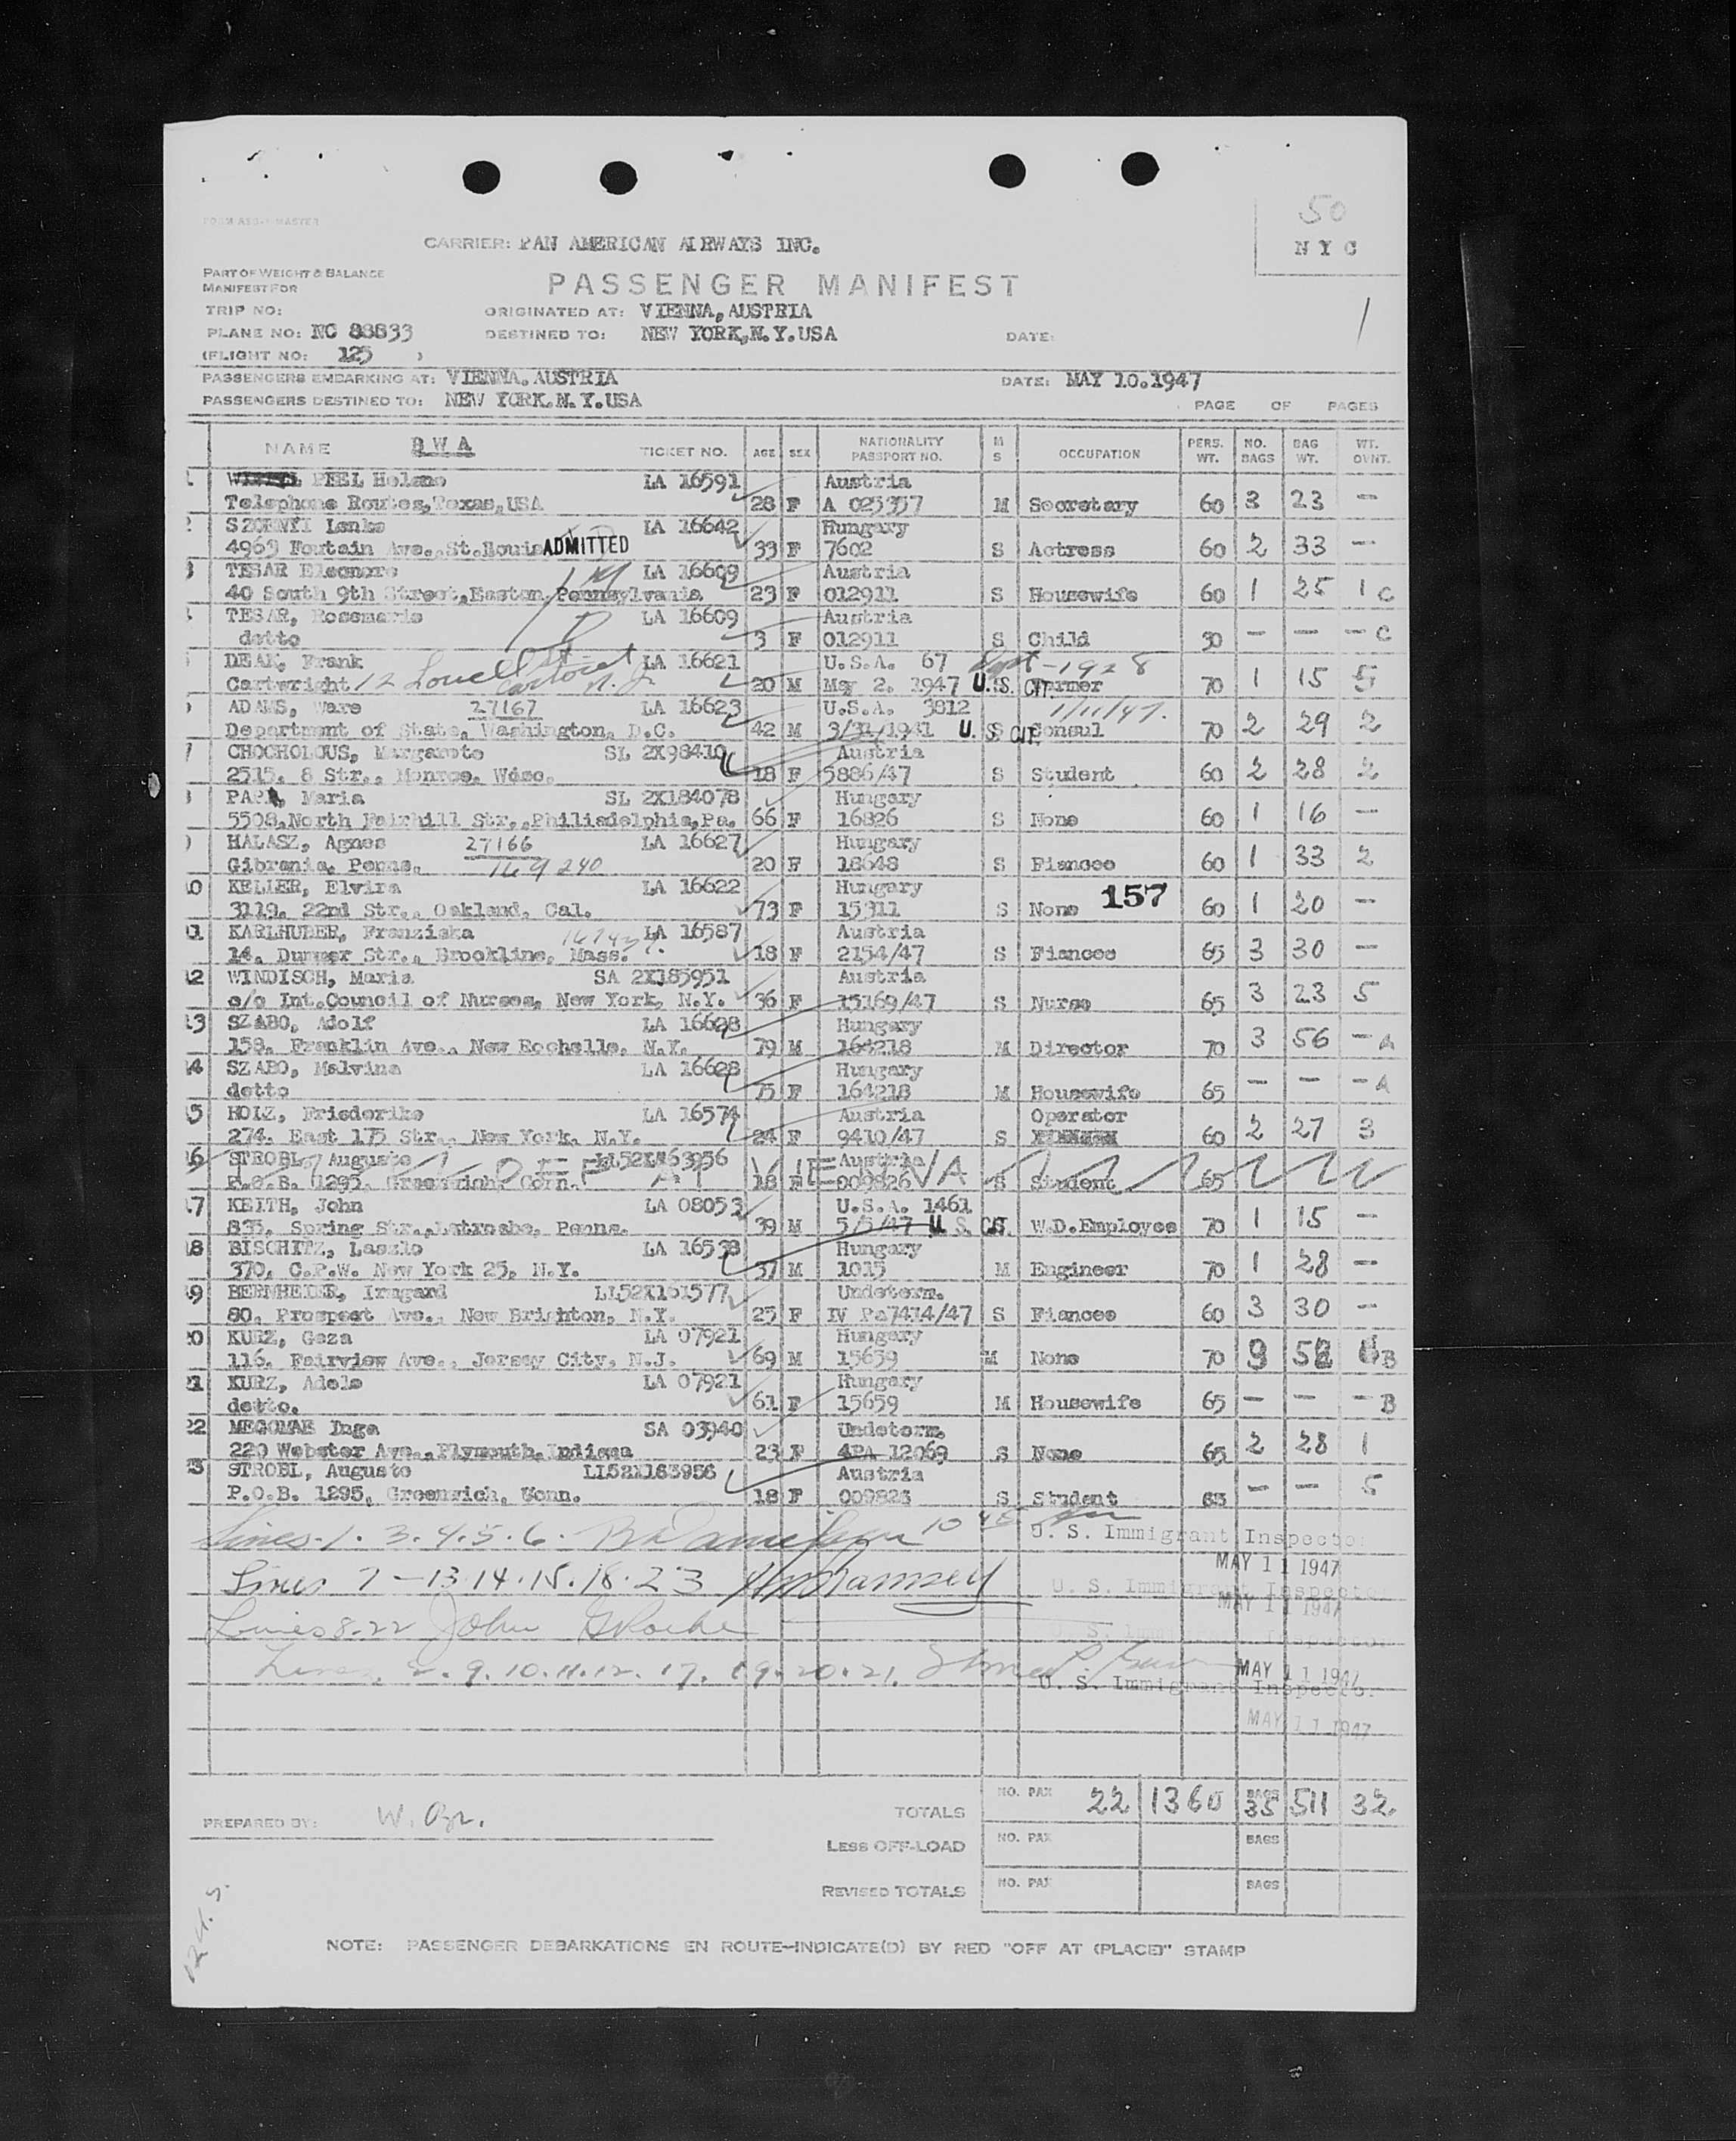 50
NYC
FORM MASTER
CARRIER: PAN AMERICAN AIRWAYS INC.
PART OF WEIGHT & BALANCE
MANIFEST FOR
PASSENGER MANIFEST
TRIP NO:
ORIGINATED AT: VIENNA, AUSTRIA
PLANE NO: NC 88833
DESTINED TO: NEW YORK, N.Y. USA
DATE:
(FLIGHT NO: 125 )
PASSENGERS EMBARKING AT: VIENNA, AUSTRIA DATE: MAY 10.1947
PASSENGERS DESTINED TO: NEW YORK, N.Y. USA
PAGE OF PAGES
NAME TICKET NO. AGE SEX NATIONALITY PASSPORT NO. M S OCCUPATION PERS. WT. NO. BAGS BAG WT. WT. OVNT.
1 PEEL Helene LA 16591 Austria
Telephone Routes, Texas, USA 28 F A 025357 M Secretary 60 3 23 —
2 Lenke LA 16642 Hungary
4963 Foutain Ave., St. Louis ADMITTED 33 F 7602 S Actress 60 2 33 —
3 TESAR Eleonore LA 16609 Austria
40 South 9th Street, Easton, Pennsylvania 23 F 012911 S Housewife 60 1 25 1 C
TESAR, Rosemarie LA 16609 Austria
detto 3 F 012911 S Child 30 — — — C
DEAK, Frank LA 16621 U.S.A. 67 Sept - 1928
Cartwright 12 Lowell Street Carteret N.J. 20 M May 2. 1947 U.S. CIT. Farmer 70 1 15 5
ADAMS, Ware 27167 LA 16623 U.S.A. 3812 1/11/47.
Department of State, Washington, D.C. 42 M 3/31/1941 U.S. CIT. Consul 70 2 29 2
7 CHOCHOLOUS, Margarete SL 2X98410 Austria
2515. 8 Str., Monroe, Wisc. 18 F 5886/47 S Student 60 2 28 2
PAPP, Maria SL 2X184078 Hungary
5508, North Fairhill Str., Philiadelphia, Pa. 66 F 16826 S None 60 1 16 —
HALASZ, Agnes 27166 LA 16627 Hungary
Gibsonia, Penns. 169240 20 F 18648 S Fiancee 60 1 33 2
10 KELLER, Elvira LA 16622 Hungary
3119. 22nd Str., Oakland, Cal. 73 F 15311 S None 157 60 1 20 —
11 KARLHUBER, Franziska LA 16587 Austria
14. Str., Brookline, Mass. 18 F 2154/47 S Fiancee 65 3 30 —
12 WINDISCH, Maria SA 2X185951 Austria
c/o Int. Council of Nurses, New York, N.Y. 36 F 15169/47 S Nurse 65 3 23 5
13 SZABO, Adolf LA 16628 Hungary
158. Franklin Ave., New Rochelle, N.Y. 79 M 164218 M Director 70 3 56 — A
14 SZABO, Malvina LA 16628 Hungary
detto 75 F 164218 M Housewife 65 — — — A
15 HOLZ, Friederike LA 16574 Austria Operator
274. East 175 Str., New York, N.Y. 24 F 9410/47 S 60 2 27 3
16 STROBL, Auguste LL52X163956 Austria
P.O.B. 1295, Greenwich, Conn. OFF AT VIENNA 18 F 009826 S Student 65
17 KEITH, John LA 08053 U.S.A. 1461
835, Spring Str., Latrosbe, Penns. 39 M 5/5/47 U.S. CIT. W.D.Employee 70 1 15 —
18 BISCHITZ, Laszlo LA 16538 Hungary
370, C.P.W. New York 25, N.Y. 37 M 1015 M Engineer 70 1 28 —
19 BERNHEIER, Irmgard LL52X161577 Undeterm.
80, Prospect Ave., New Brighton, N.Y. 25 F IV Pa7474/47 S Fiancee 60 3 30 —
20 KURZ, Geza LA 07921 Hungary
116. Fairview Ave., Jersey City, N.J. 69 M 15659 M None 70 9 52 B
21 KURZ, Adele LA 07921 Hungary
detto. 61 F 15659 M Housewife 65 — — — B
22 Inga SA 03940 Undeterm.
220 Webster Ave., Plymouth, Indiana 23 F 4PA 12069 S None 65 2 28 1
23 STROBL, Auguste LL52X163956 Austria
P.O.B. 1295, Greenwich, Conn. 18 F 009823 S Student 65 — — 5
Lines. 1. 3. 4. 5. 6. U. S. Immigrant Inspector
MAY 11 1947
Lines 7-13.14.15.18.23 Ramsey U. S. Immigrant Inspector
MAY 11 1947
Lines 8.22 John Roche U. S. Immigrant Inspector
Lines. 2. 9. 10. 11. 12. 17. 19. 20. 21. MAY 11 1947
U. S. Immigrant Inspector
MAY 11 1947
TOTALS NO. PAX 22 1360 BAGS 35 511 32
PREPARED BY:
LESS OFF-LOAD NO. PAX BAGS
REVISED TOTALS NO. PAX BAGS
NOTE: PASSENGER DEBARKATIONS EN ROUTE—INDICATE(D) BY RED "OFF AT (PLACE)" STAMP